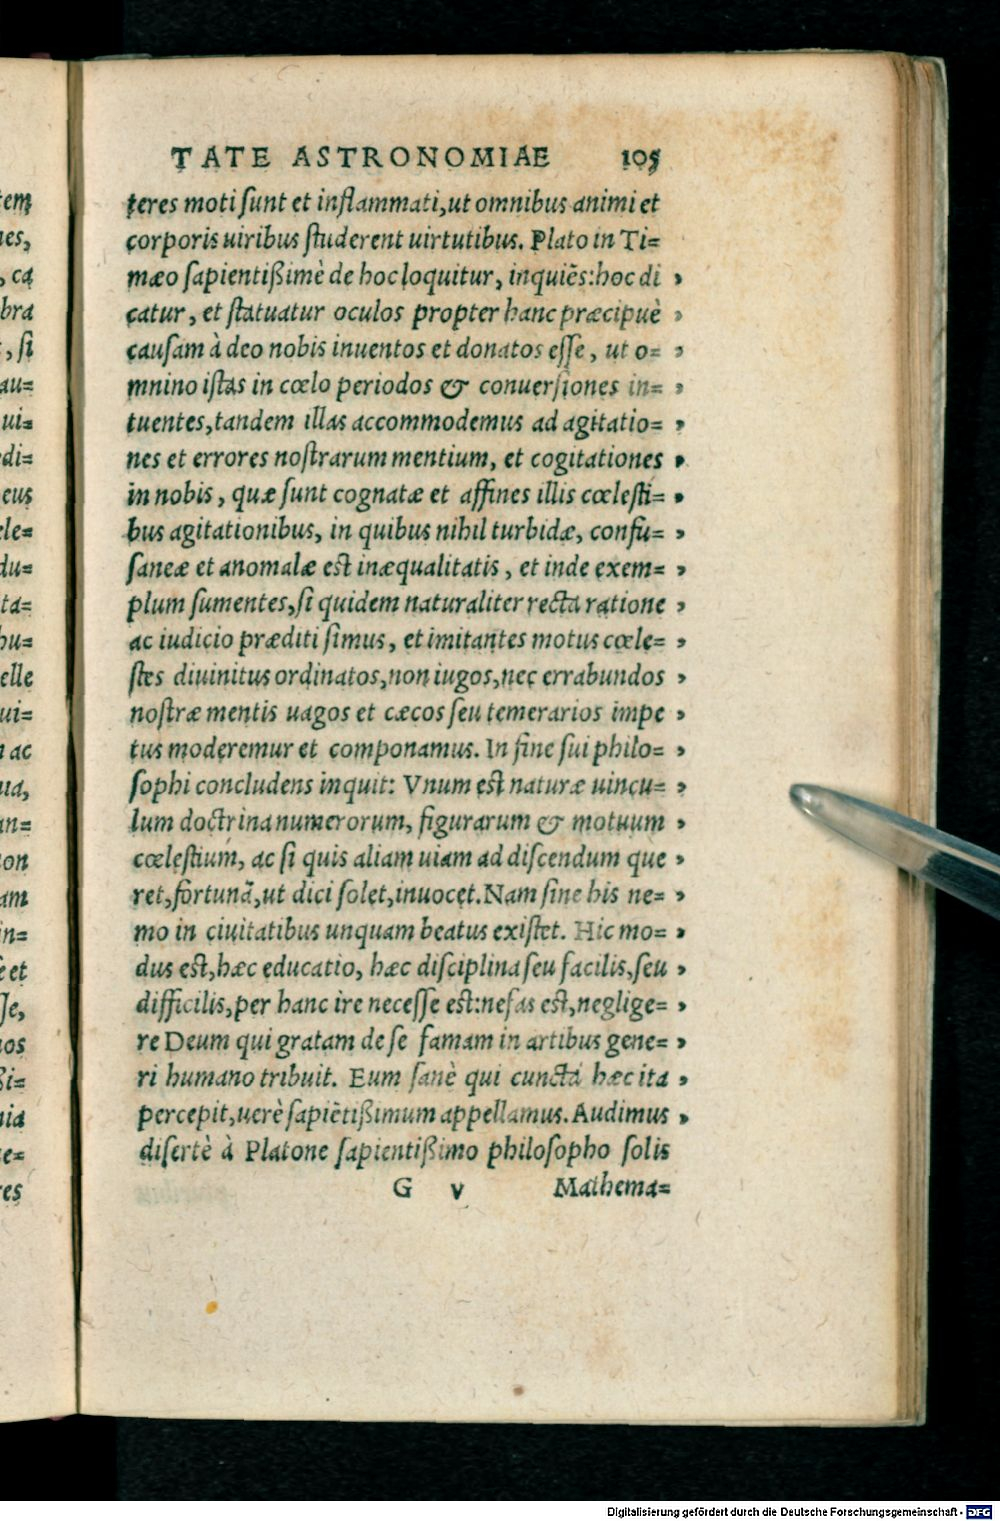 TATE ASTRONOMIAE 105
teres moti sunt et inflammati, ut omnibus animi et
corporis uiribus studerent uirtutibus. Plato in Ti=
mæo sapientißimè de hoc loquitur, inquiēs: hoc di ,
catur, et statuatur oculos propter hanc præcipuè ,
causam à deo nobis inuentos et donatos esse, ut o= ,
mnino istas in cœlo periodos & conuersiones in= ,
tuentes, tandem illas accommodemus ad agitatio= ,
nes et errores nostrarum mentium, et cogitationes ,
in nobis, quæ sunt cognatæ et affines illis cœlesti= ,
bus agitationibus, in quibus nihil turbidæ, confu= ,
saneæ et anomalæ est inæqualitatis, et inde exem= ,
plum sumentes, si quidem naturaliter recta ratione ,
ac iudicio præditi simus, et imitantes motus cœle= ,
stes diuinitus ordinatos, non iugos, nec errabundos ,
nostræ mentis uagos et cæcos seu temerarios impe ,
tus moderemur et componamus. In fine sui philo= ,
sophi concludens inquit: Vnum est naturæ uincu= ,
lum doctrina numerorum, figurarum & motuum ,
cœlestium, ac si quis aliam uiam ad discendum que ,
ret, fortunā, ut dici solet, inuocet. Nam sine his ne= ,
mo in ciuitatibus unquam beatus existet. Hic mo= ,
dus est, hæc educatio, hæc disciplina seu facilis, seu ,
difficilis, per hanc ire necesse est: nefas est, neglige= ,
re Deum qui gratam de se famam in artibus gene= ,
ri humano tribuit. Eum sanè qui cuncta hæc ita ,
percepit, uerè sapiētißimum appellamus. Audimus ,
disertè à Platone sapientißimo philosopho solis
G v Mathema=
Digitalisierung gefördert durch die Deutsche Forschungsgemeinschaft - DFG